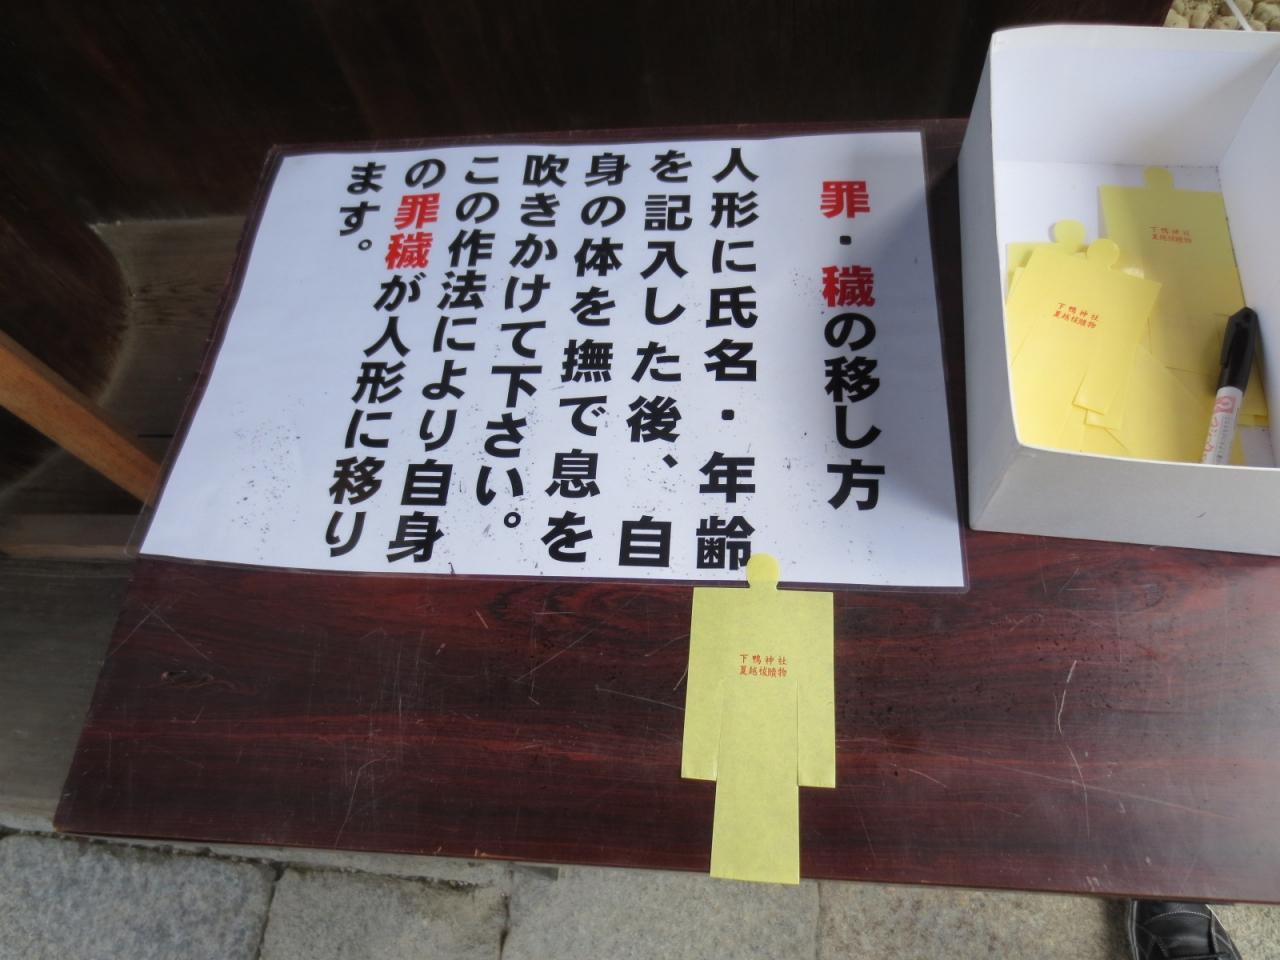 罪・穢の移し方
人形に氏名・年齢
を記入した後、自
身の体を撫で息を
吹きかけて下さい。
この作法により自身
の罪穢が人形に移り
ます。
下鴨神社
夏越祓贖物
下鴨神社
夏越祓贖物
下鴨神社
夏越祓贖物